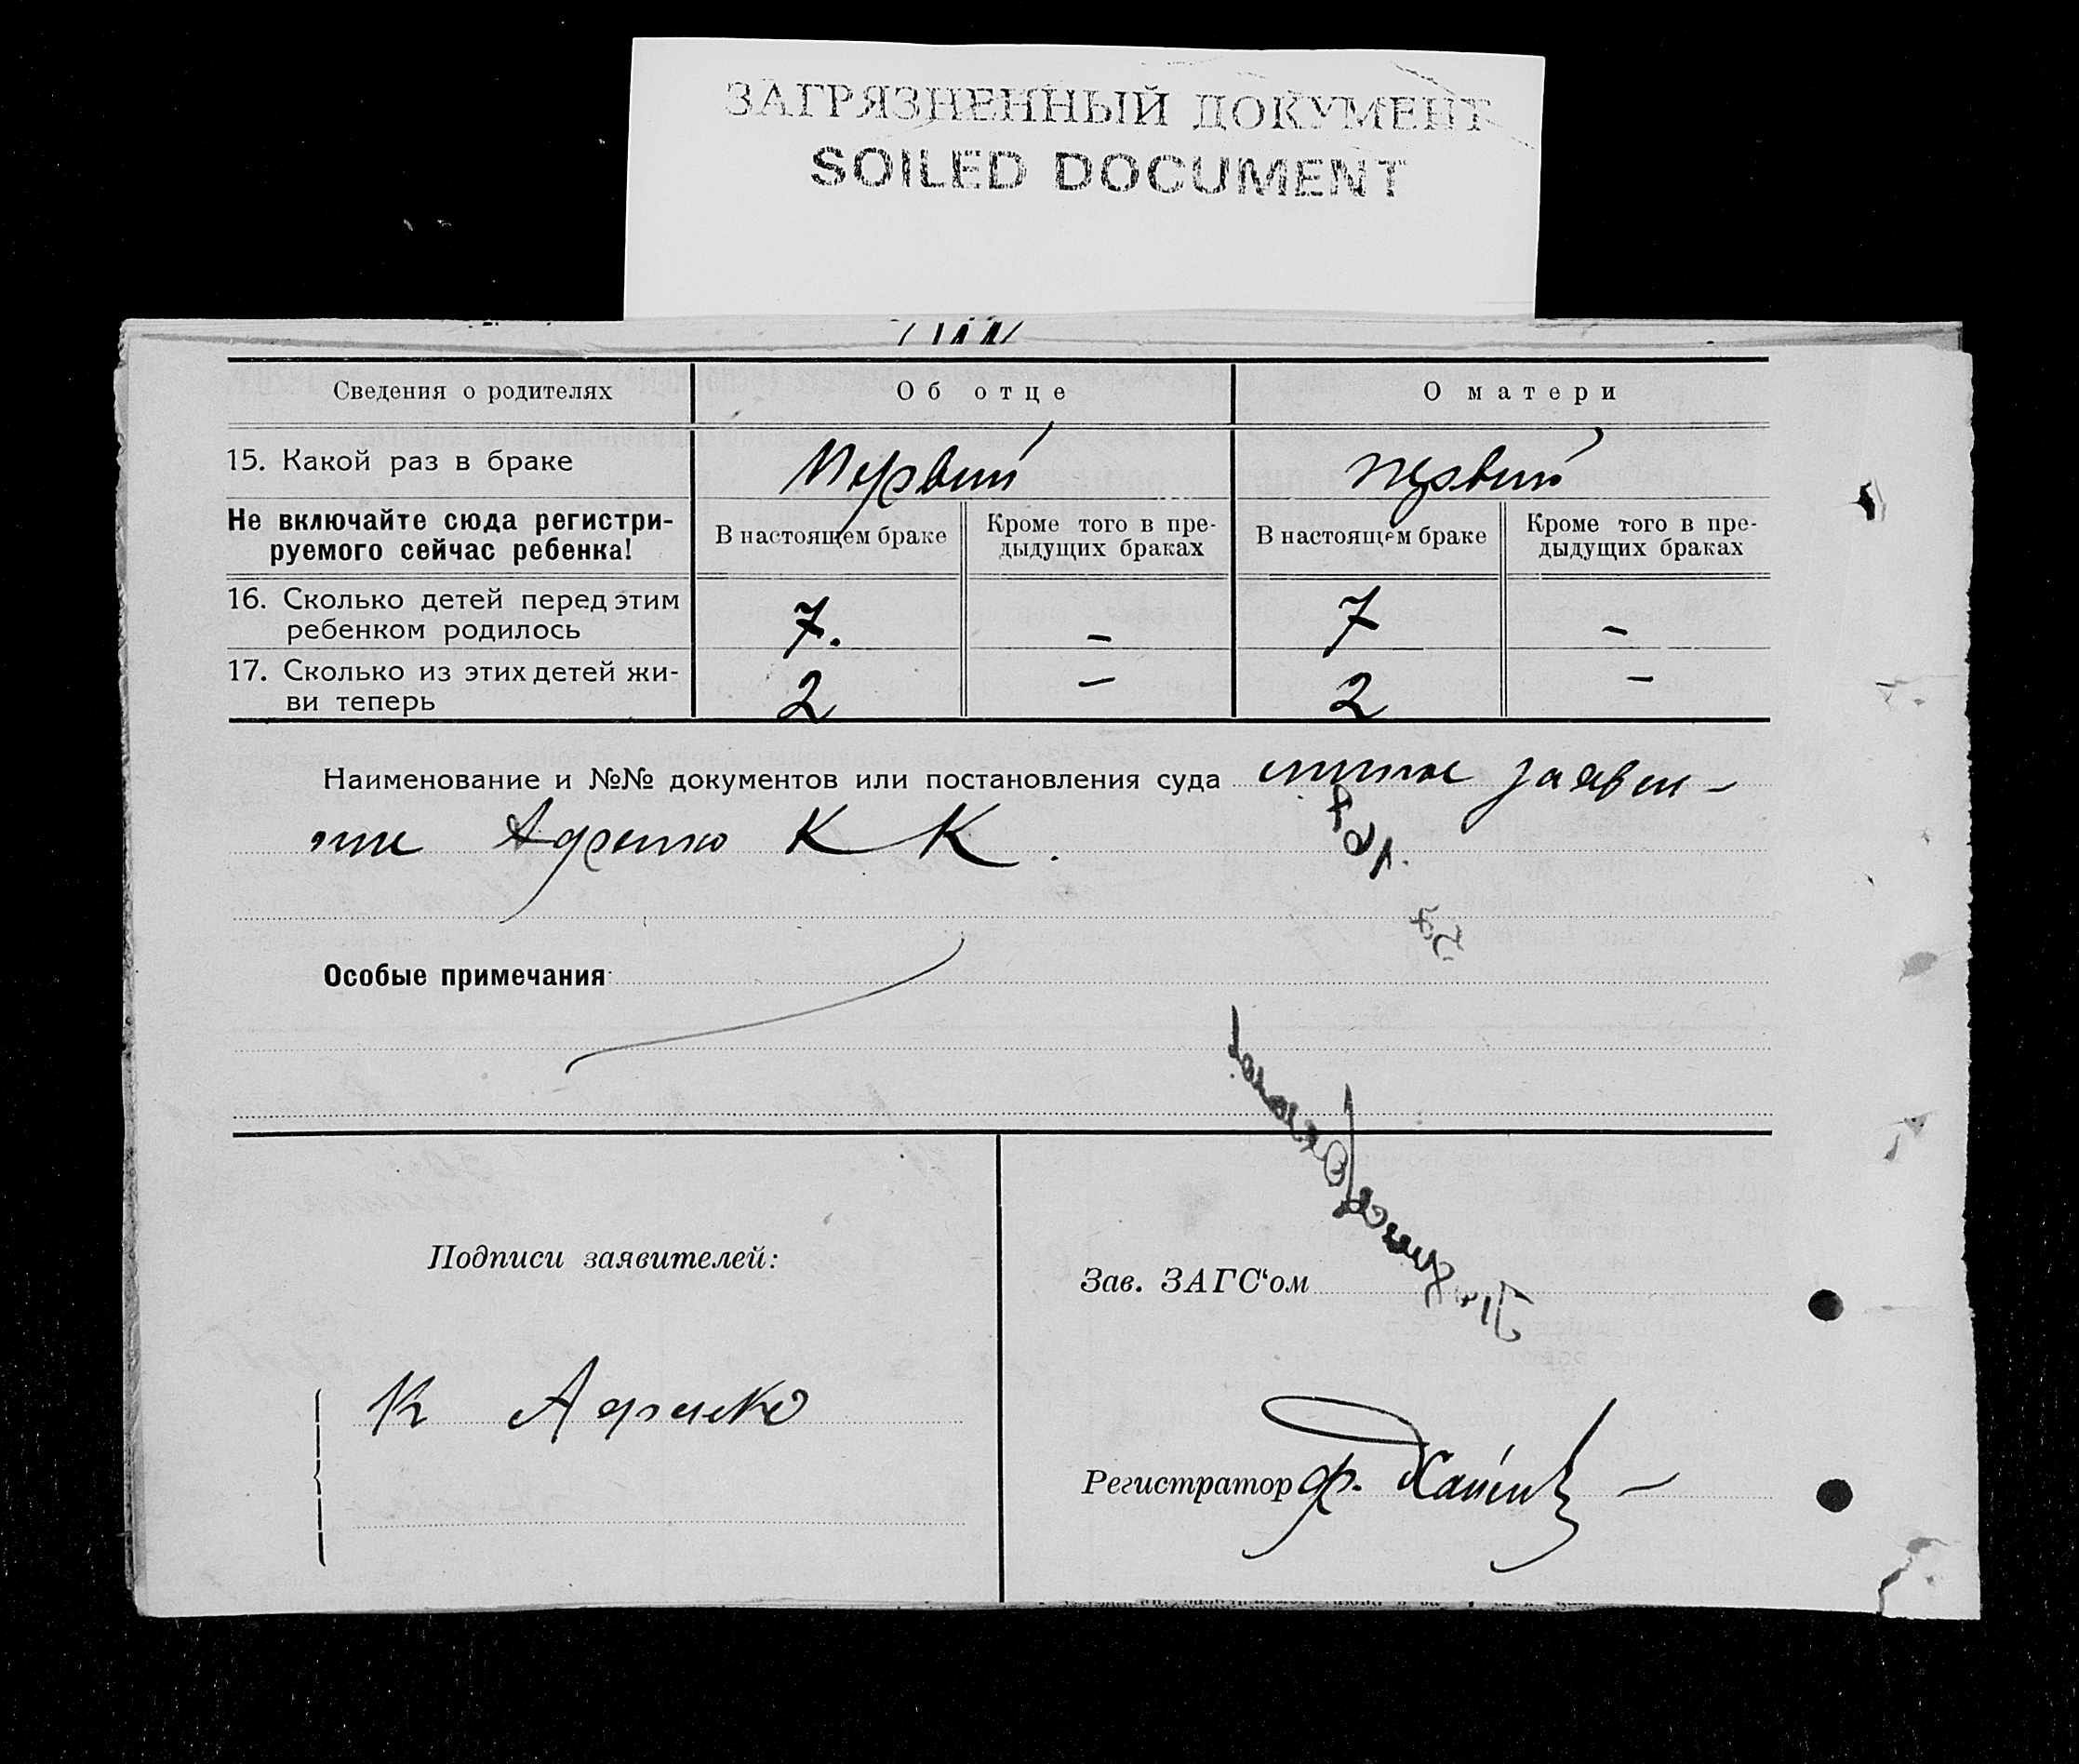 ЗАГРЯЗНЕННЫЙ ДОКУМЕНТ
SOILED DOCUMENT
Сведения о родителях Об отце О матери
15. Какой раз в браке Первый первый
Не включайте сюда регистри-
руемого сейчас ребенка!
В настоящем браке Кроме того в пре-
дыдущих браках
В настоящем браке Кроме того в пре-
дыдущих браках
16. Сколько детей перед этим
ребенком родилось 7. – 7 –
17. Сколько из этих детей жи-
ви теперь 2 – 2 –
Наименование и №№ документов или постановления суда заявле-
ние К К.
Особые примечания
Подписи заявителей:
Зав. ЗАГС‘ом
К
Регистратор Ф.